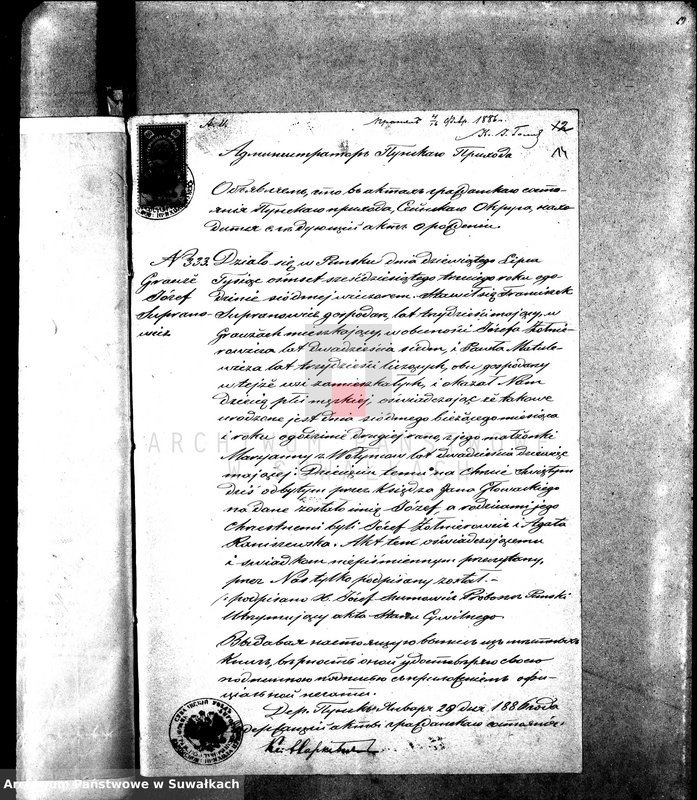 12
14
Администраторъ Пунскаго Прихода
Объявляетъ, что въ актахъ гражданскаго состо-
янія Пунскаго прихода, Сейнскаго Округа, нахо-
дится слѣдующій актъ о рожденіи.
N 333.
Józef
Suprano-
wicz
Działo się w Puńsku dnia dziewiątego Lipca
Tysiąc ośmset sześćdziesiątego trzeciego roku ogo-
dzinie siódmej wieczorem. Stawił się Franciszek
Supranowicz gospodarz, lat trzydzieści mający, w
mieszkający, w obecności Józefa Żołnie-
rowicza lat dwadzieścia siedm, i Pawła Matule-
wicza lat trzydzieści liczących, obu gospodarzy
w tejże wsi zamieszkałych, i okazał Nam
dziecię płci męzkiej, oświadczając że takowe
urodzone jest dnia siódmego bieżącego miesiąca
i roku, o godzinie drugiej rano, z jego małżonki
Maryanny z lat dwadzieścia dziewięć
mającej. Dziecięciu temu na Chrzcie Świętym
dziś odbytym przez Księdza Jana Głowackiego
nadane zostało imię Józef, a rodzicami jego
Chrzestnemi byli Józef Żołnierowicz i Agata
Raniszewska. Akt ten oświadczającemu
i świadkom niepiśmiennym przeczytany,
przez Nas tylko podpisany został.-
/podpisano X. Józef Proboszcz Puński
Utrzymujący akta Stanu Cywilnego
Выдавая настоящую выпись изъ
книгъ, вѣрность оной удостовѣряю своею
подписью съ приложеніемъ офи-
ціальной печати.
Дер. Пунскъ, Января 29 дня 1886 года
актъ гражданскаго состоянія:
ARCHIWUM PAŃSTWOWE
W SUWAŁKACH
Archiwum Państwowe w Suwałkach